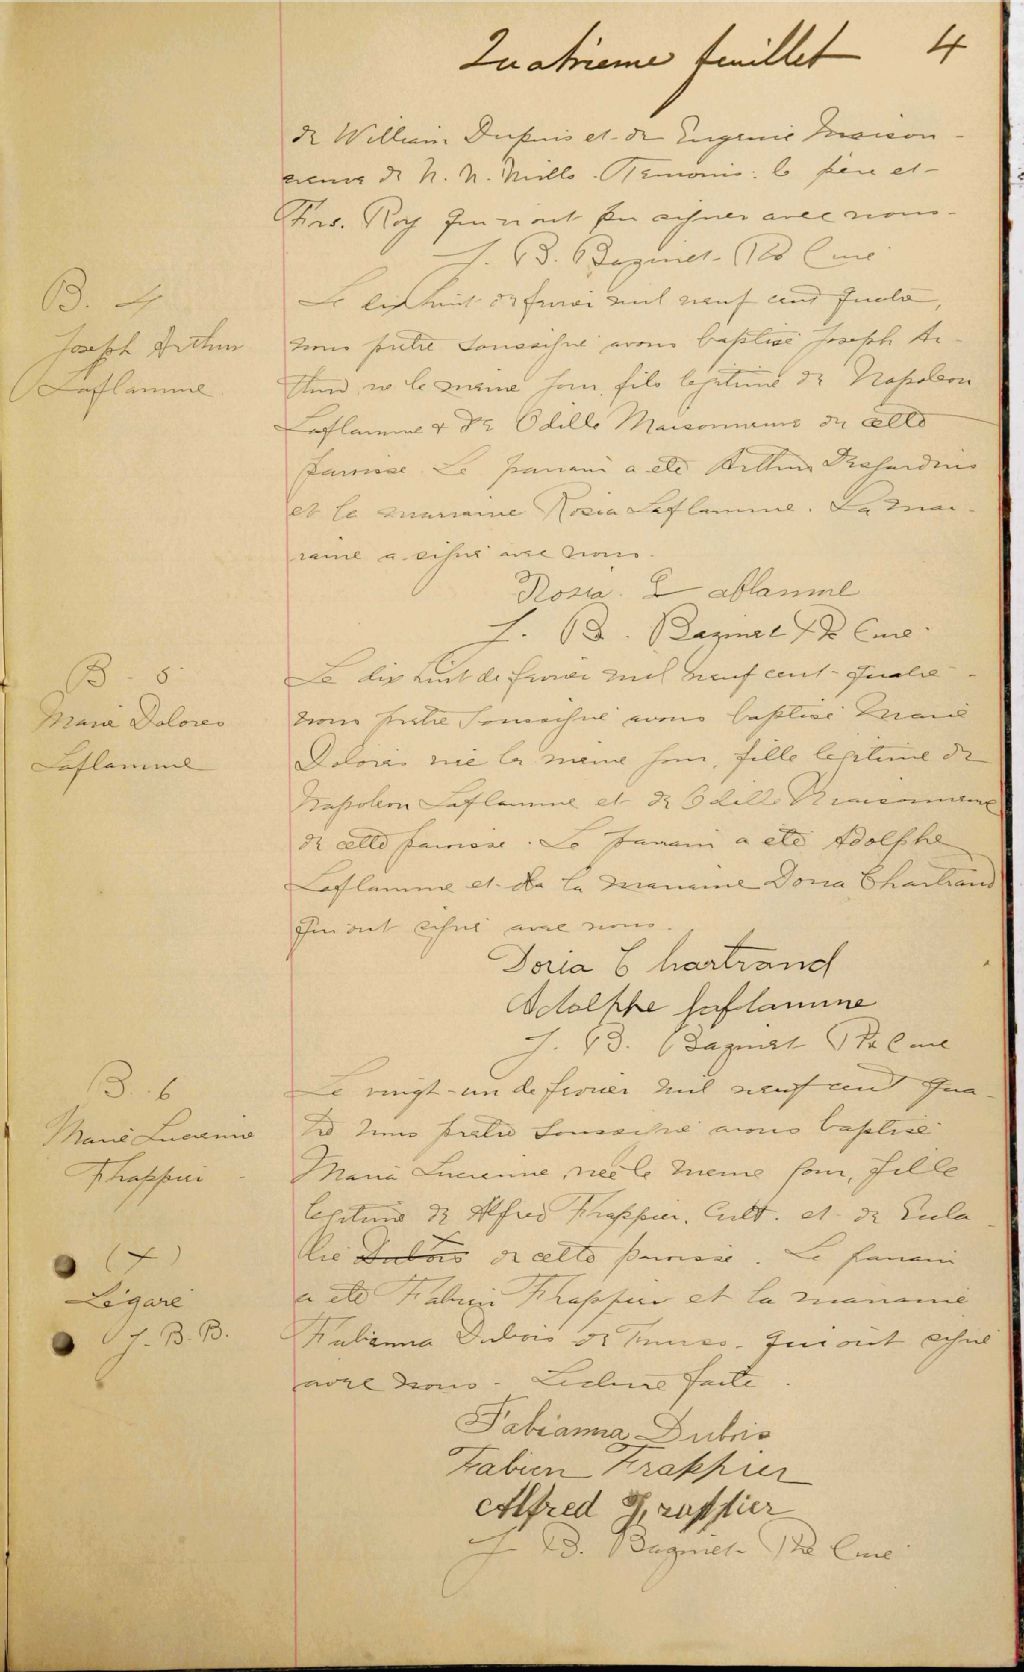 Quatrième feuillet 4
de William Dupuis et de Eugenie Maison-
neuve de N. N. Mills. Temoins: le père et
Frs. Roy qui n'ont pu signer avec nous.
J. B. Bazinet Ptre Curé
B. 4
Joseph Arthur
Laflamme
Le dix huit de fevrier mil neuf cent quatre,
nous prêtre soussigné avons baptisé Joseph Ar-
thur né le même jour, fils legitime de Napoleon
Laflamme & de Odille Maisonneuve de cette
paroisse. Le parrain a été Arthur Desjardins
et la marraine Rosia Laflamme. La mar-
raine a signé avec nous.
Rosia Laflamme
J. B. Bazinet Ptre Curé
B. 5
Marie Dolores
Laflamme
Le dix huit de fevrier mil neuf cent quatre
nous prêtre soussigné avons baptisé Marie
Dolores née le même jour, fille legitime de
Napoleon Laflamme et de Odille Maisonneuve
de cette paroisse. Le parrain a été Adolphe
Laflamme et la marraine Doria Chartrand
qui ont signé avec nous.
Doria Chartrand
Adolphe Laflamme
J. B. Bazinet Ptre Curé
B. 6
Marie Lucienne
Frappier
(x)
Légaré
J. B. B.
Le vingt-un de fevrier mil neuf cent qua-
tre nous prêtre soussigné avons baptisé
Maria Lucienne, née le meme jour, fille
legitime de Alfred Frappier, Cult. et de Eula-
lie Dubois x de cette paroisse. Le parrain
a été Fabien Frappier et la marraine
Fabianna Dubois de qui ont signé
avec nous. Lecture faite.
Fabianna Dubois
Fabien Frappier
Alfred Frappier
J. B. Bazinet Ptre Curé